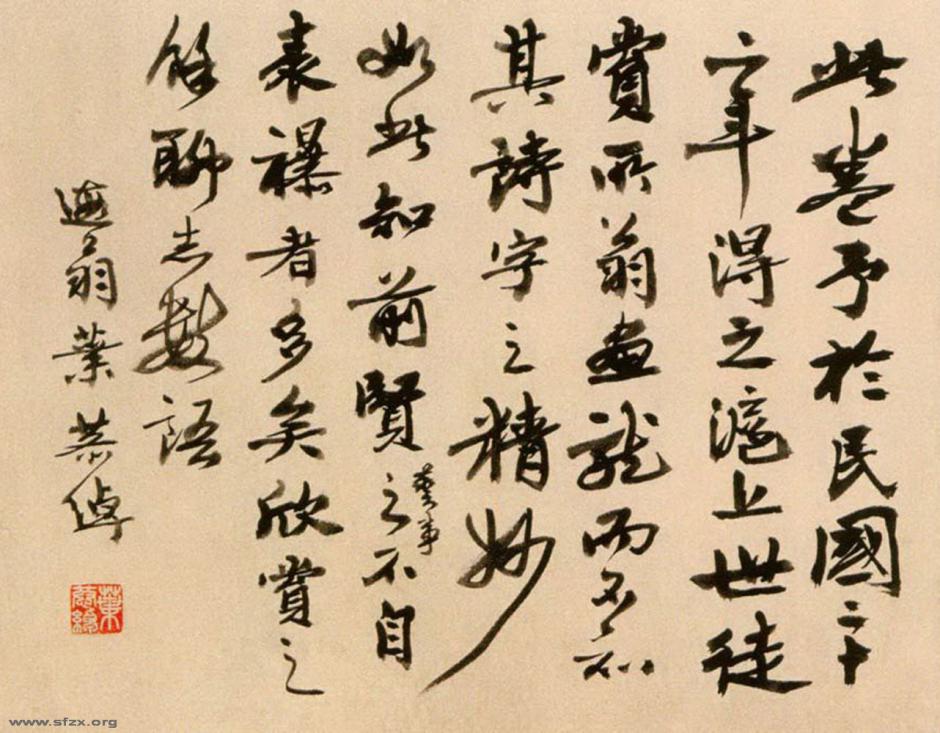 此卷予於民國二十
六年得之滬上世徒
賞所翁畫龍而不知
其詩字之精妙
如此知前賢藝事之不自
表襮者多矣欣賞之
餘聊志數語
遐翁葉恭綽
葉恭綽
www.sfzx.org